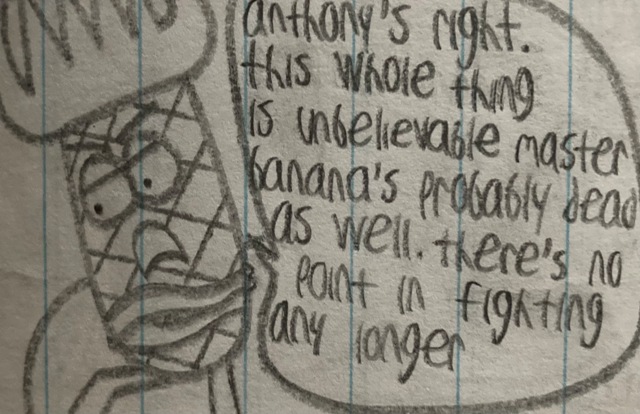 anthony's right.
this whole thing
is unbelievable master
banana's probably dead
as well. there's no
point in fighting
any longer